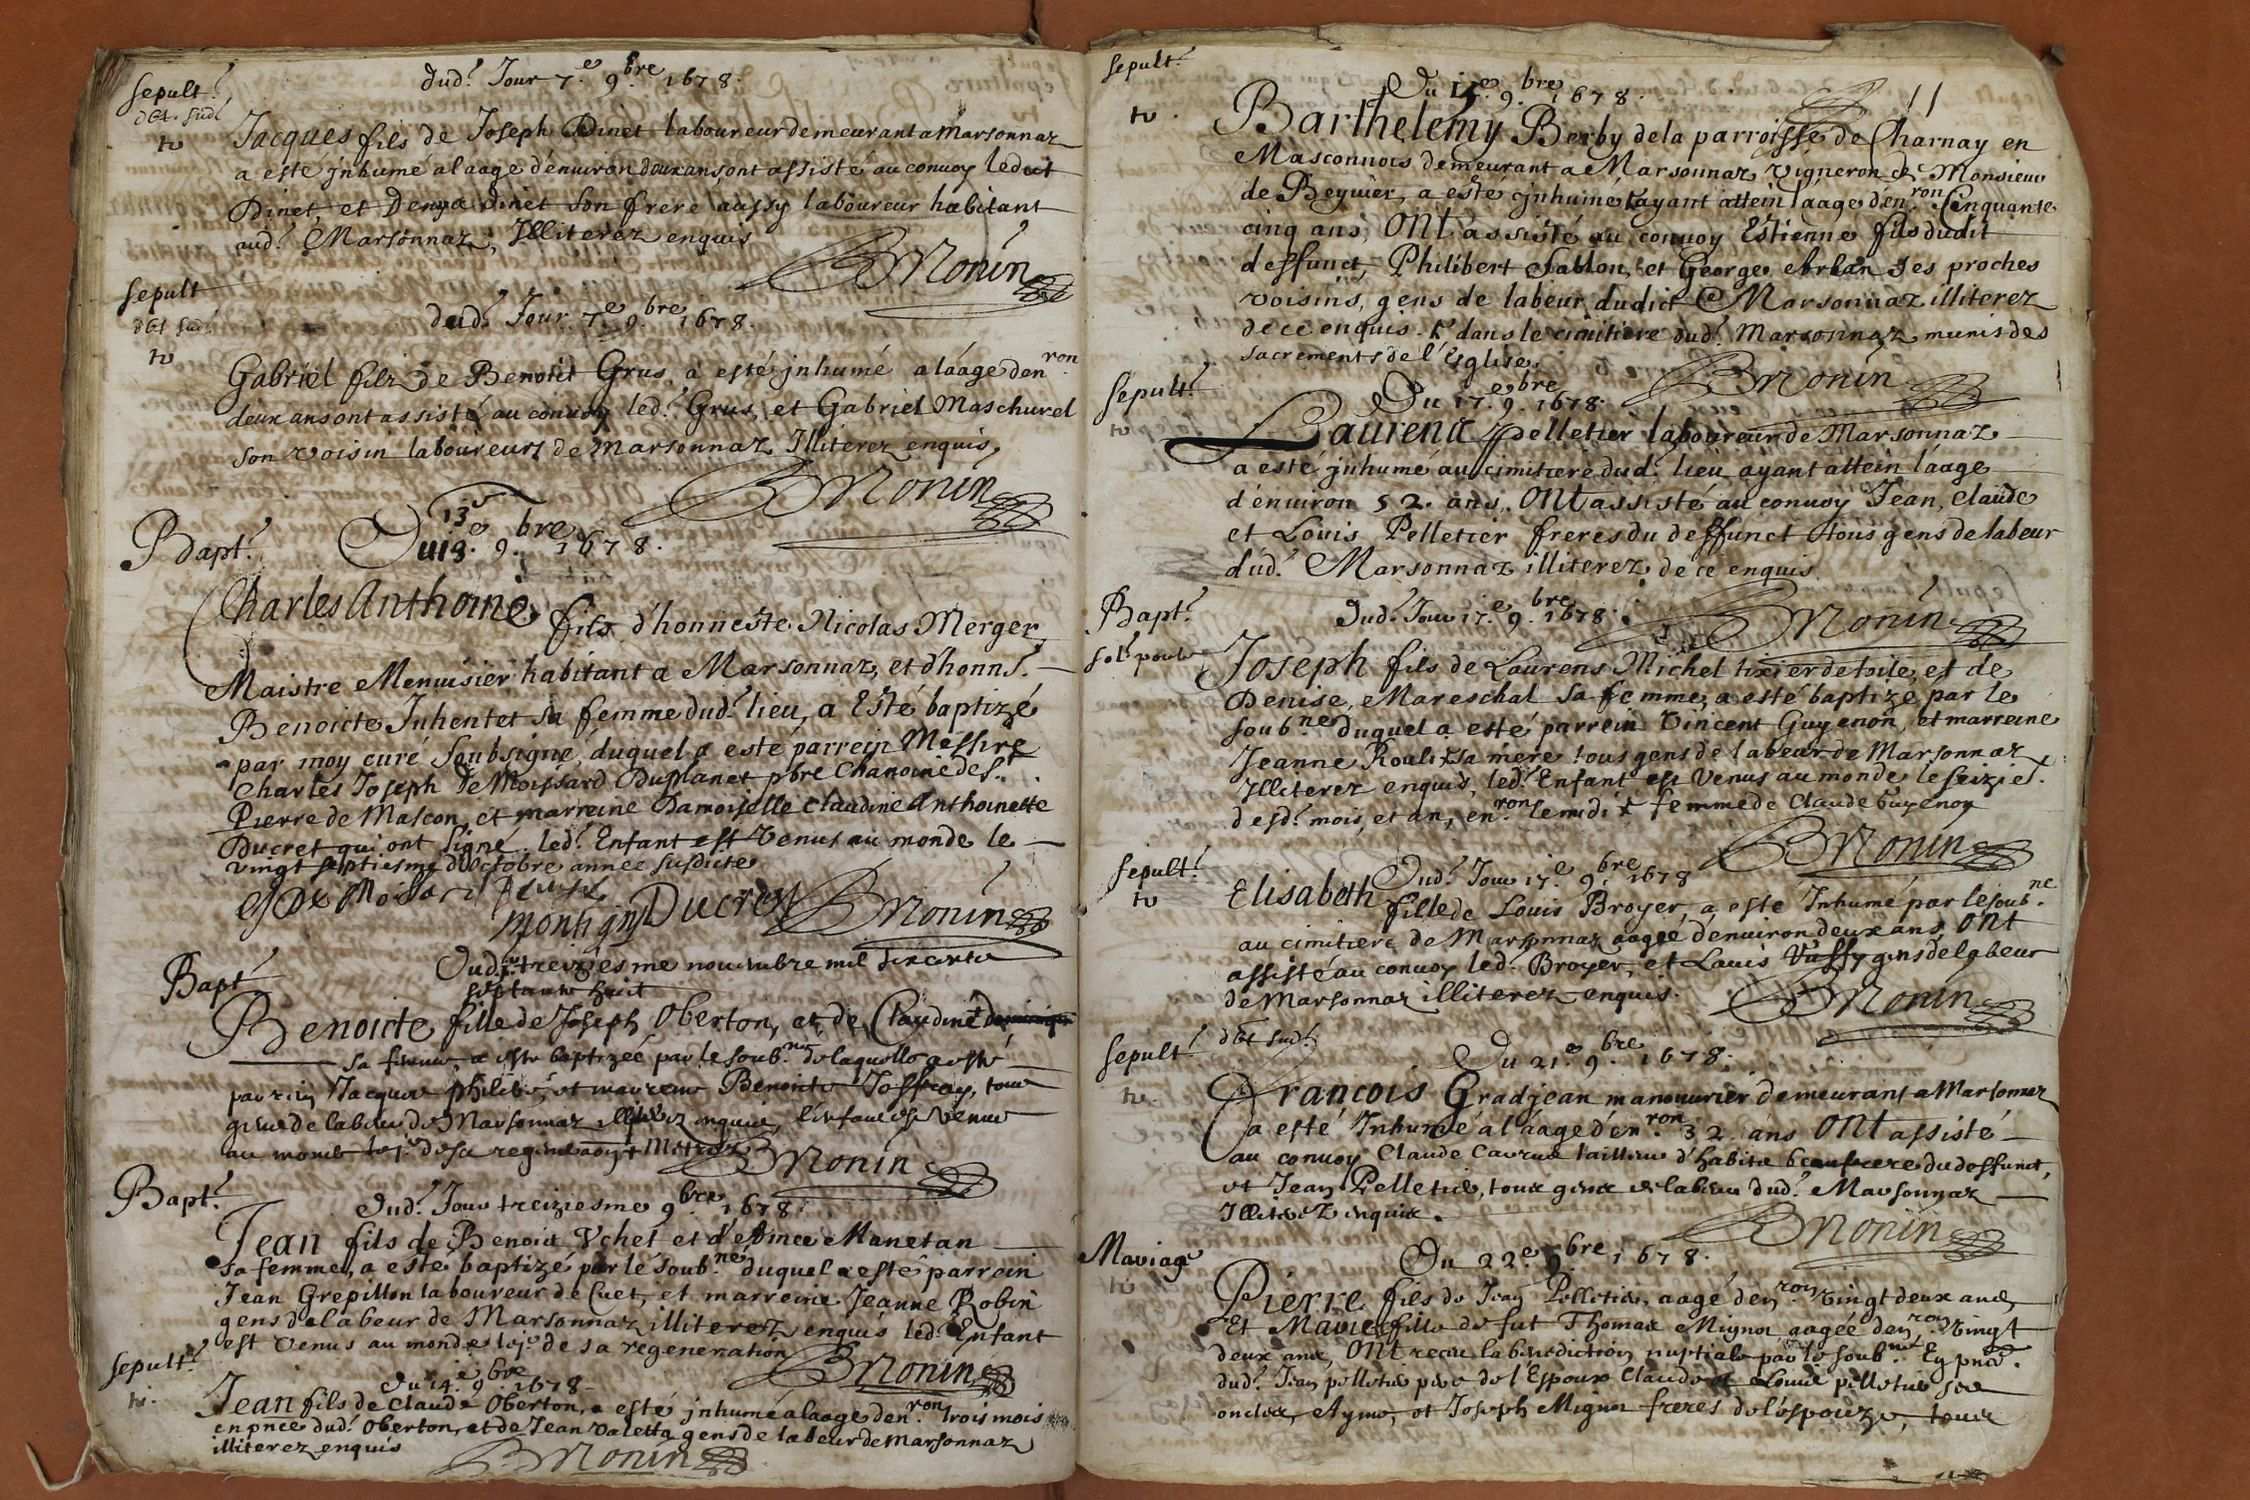 sepult.e
dud.t Jour 7.e 9.bre 1678.
Jacques fils de Joseph Dinet laboureur demeurant a Marsonnaz
a esté jnhumé a laage d'enuiron deux ans, ont assisté au convoy ledict
Dinet, et Denys Dinet son frere aussy laboureur habitant
aud.t Marsonnaz, Illiterez enquis
Bronin
sepult
dud.t Jour 7.e 9.bre 1678.
Gabriel filz de Benoist Grus, a esté jnhumé a láage den.ron
deux ans ont assisté au convoy led.t Grus, et Gabriel Maschurel
son voisin laboureurs de Marsonnaz Illiterez enquis,
Bronin
13e
Bapt.e
Du 13. 9.bre 1678.
Charles Anthoine fils d'honneste Nicolas Merger
Maistre Menuisier habitant a Marsonnaz, et d'honns.t
Benoicte Juhentet sa femme dud.t lieu, a Esté baptizé
par moy curé soubsigné, duquel a esté parrein Messire
Charles Joseph de Moissard Duplanet pbre Chanoine de s.t
Pierre de Mascon, et marreine Damoiselle Claudine Anthoinette
Ducret qui ont signé. led.t Enfant est Venus au monde le
vingt septiesme d'octobre année susdicte
montigny Ducret Bronin
Bapt.e
Dud.t treiziesme nouembre mil sixcents
septante huict
Benoicte fille de Joseph Oberton, et de Claudine
sa femme, a esté baptizée par le soub.né de laquelle a esté
parrein Jacques Philibé, et marreine Benoicte Joffray, tous
gens de labeur de Marsonnaz illiterez enquis, l'enfant est venue
au monde le j.r de sa regineraon
Bronin
Bapt.e
Dud.t Jour treiziesme 9.bre 1678.
Jean fils de Benoist Vchet et d'estinee Manetan
sa femme, a este baptizé par lé soub.né duquel a esté parrein
Jean Grepillon laboureur de Cuet, et marreine Jeanne Robin
gens de labeur de Marsonnaz illiterez enquis led.t Enfant
est Venus au monde le j.r de sa regeneration
Bronin
sepult.e
Du 14.e 9.bre 1678
Jean fils de Claude Oberton, a esté jnhumé a laage den.ron trois mois
en pnce dud.t Oberton, et de Jean Valetta gens de labeur de Marsonnaz
illiterez enquis
Bronin
sepult.e
Du 15.e 9.bre 1678.
11
Barthelemy Berby de la parroisse de Charnay en
Masconnois demeurant a Marsonnaz vigneron de Monsieur
de Beyuier, a esté jnhumé ayant attein láage d'én.ron Cinquante
cinq ans, ONT assisté au convoy Estienne fils dudit
deffunct, Philibert Sablon, et George ebrlan ses proches
voisins, gens de labeur dudict Marsonnaz illiterez
de ce enquis. & dans le cimitiere dud.t Marsonnaz munis des
sacrements de l'Esglise.
Bronin
sepult.e
Du 17.e 9.bre 1678.
Laurent Pelletier laboureur de Marsonnaz
a esté jnhumé au cimitiere dud.t lieu ayant attein láage
d'énuiron 52. ans, ONT assisté au convoy Jean, Claude
et Louis Pelletier freres du deffunct tous gens de labeur
dud.t Marsonnaz illiterez de ce enquis
Bronin
Bapt.e
Dud.t Jour 17.e 9.bre 1678.
Joseph fils de Laurens Michel tixier de toile, et de
Denise, Mareschal sa femme, a esté baptizé par le
soub.né duquel a esté parrein Vincent Guyenon, et marreine
Jeanne Roulix sa mere tous gens de labeur de Marsonnaz
Illiterez enquis, led.t Enfant est Venus au monde le seizies.e
desd.t mois, et an, en.ron le midi x femme de Claude Guyenon
Bronin
sepult.e
Dud.t Jour 17.e 9.bre 1678
Elisabeth fille de Louis Broyer, a esté Inhumé par le soub.né
au cimitiere de Marsonnaz aagée d'enuiron deux ans, ONT
assisté au convoy led.t Broyer, et Louis Vussy gens de labeur
de Marsonnaz illiterez enquis.
Bronin
sepult.e
Du 21.e 9.bre 1678.
Francois Gradjean manouurier demeurant a Marsonnaz
a esté Inhumé á l'áage d'én.ron 32. ans ONT assisté
au convoy Claude Cavrus tailleur d'habits beaufrere du deffunct,
et Jean Pelletier, tous gens de labeur dud.t Marsonnaz
Illiterez enquis.
Bronin
Mariage
Du 22.e 9.bre 1678.
Pierre fils de Jean Pelletier, aagé d'en.ron vingt deux ans,
Et Marie fille de fut Thomas Mignot aagée den.ron Vingt
deux ans, ONT receu la benediction nuptiale par le soub.né En pnce.
dud.t Jean pelletier pere de l'Espoux Claude et Louis pelletier ses
oncles, Aymé, et Joseph Mignot freres de l'éspouze, tous